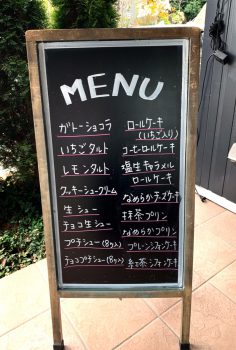 MENU
ガトーショコラ
いちごタルト
レモンタルト
クッキーシュークリーム
生シュー
チョコ生シュー
プチシュー(8ヶ入)
チョコプチシュー(8ヶ入)
ロールケーキ
(いちご入り)
コーヒーロールケーキ
塩生キャラメル
ロールケーキ
なめらかチーズケーキ
抹茶プリン
なめらかプリン
プレーンシフォンケーキ
紅茶シフォンケーキ